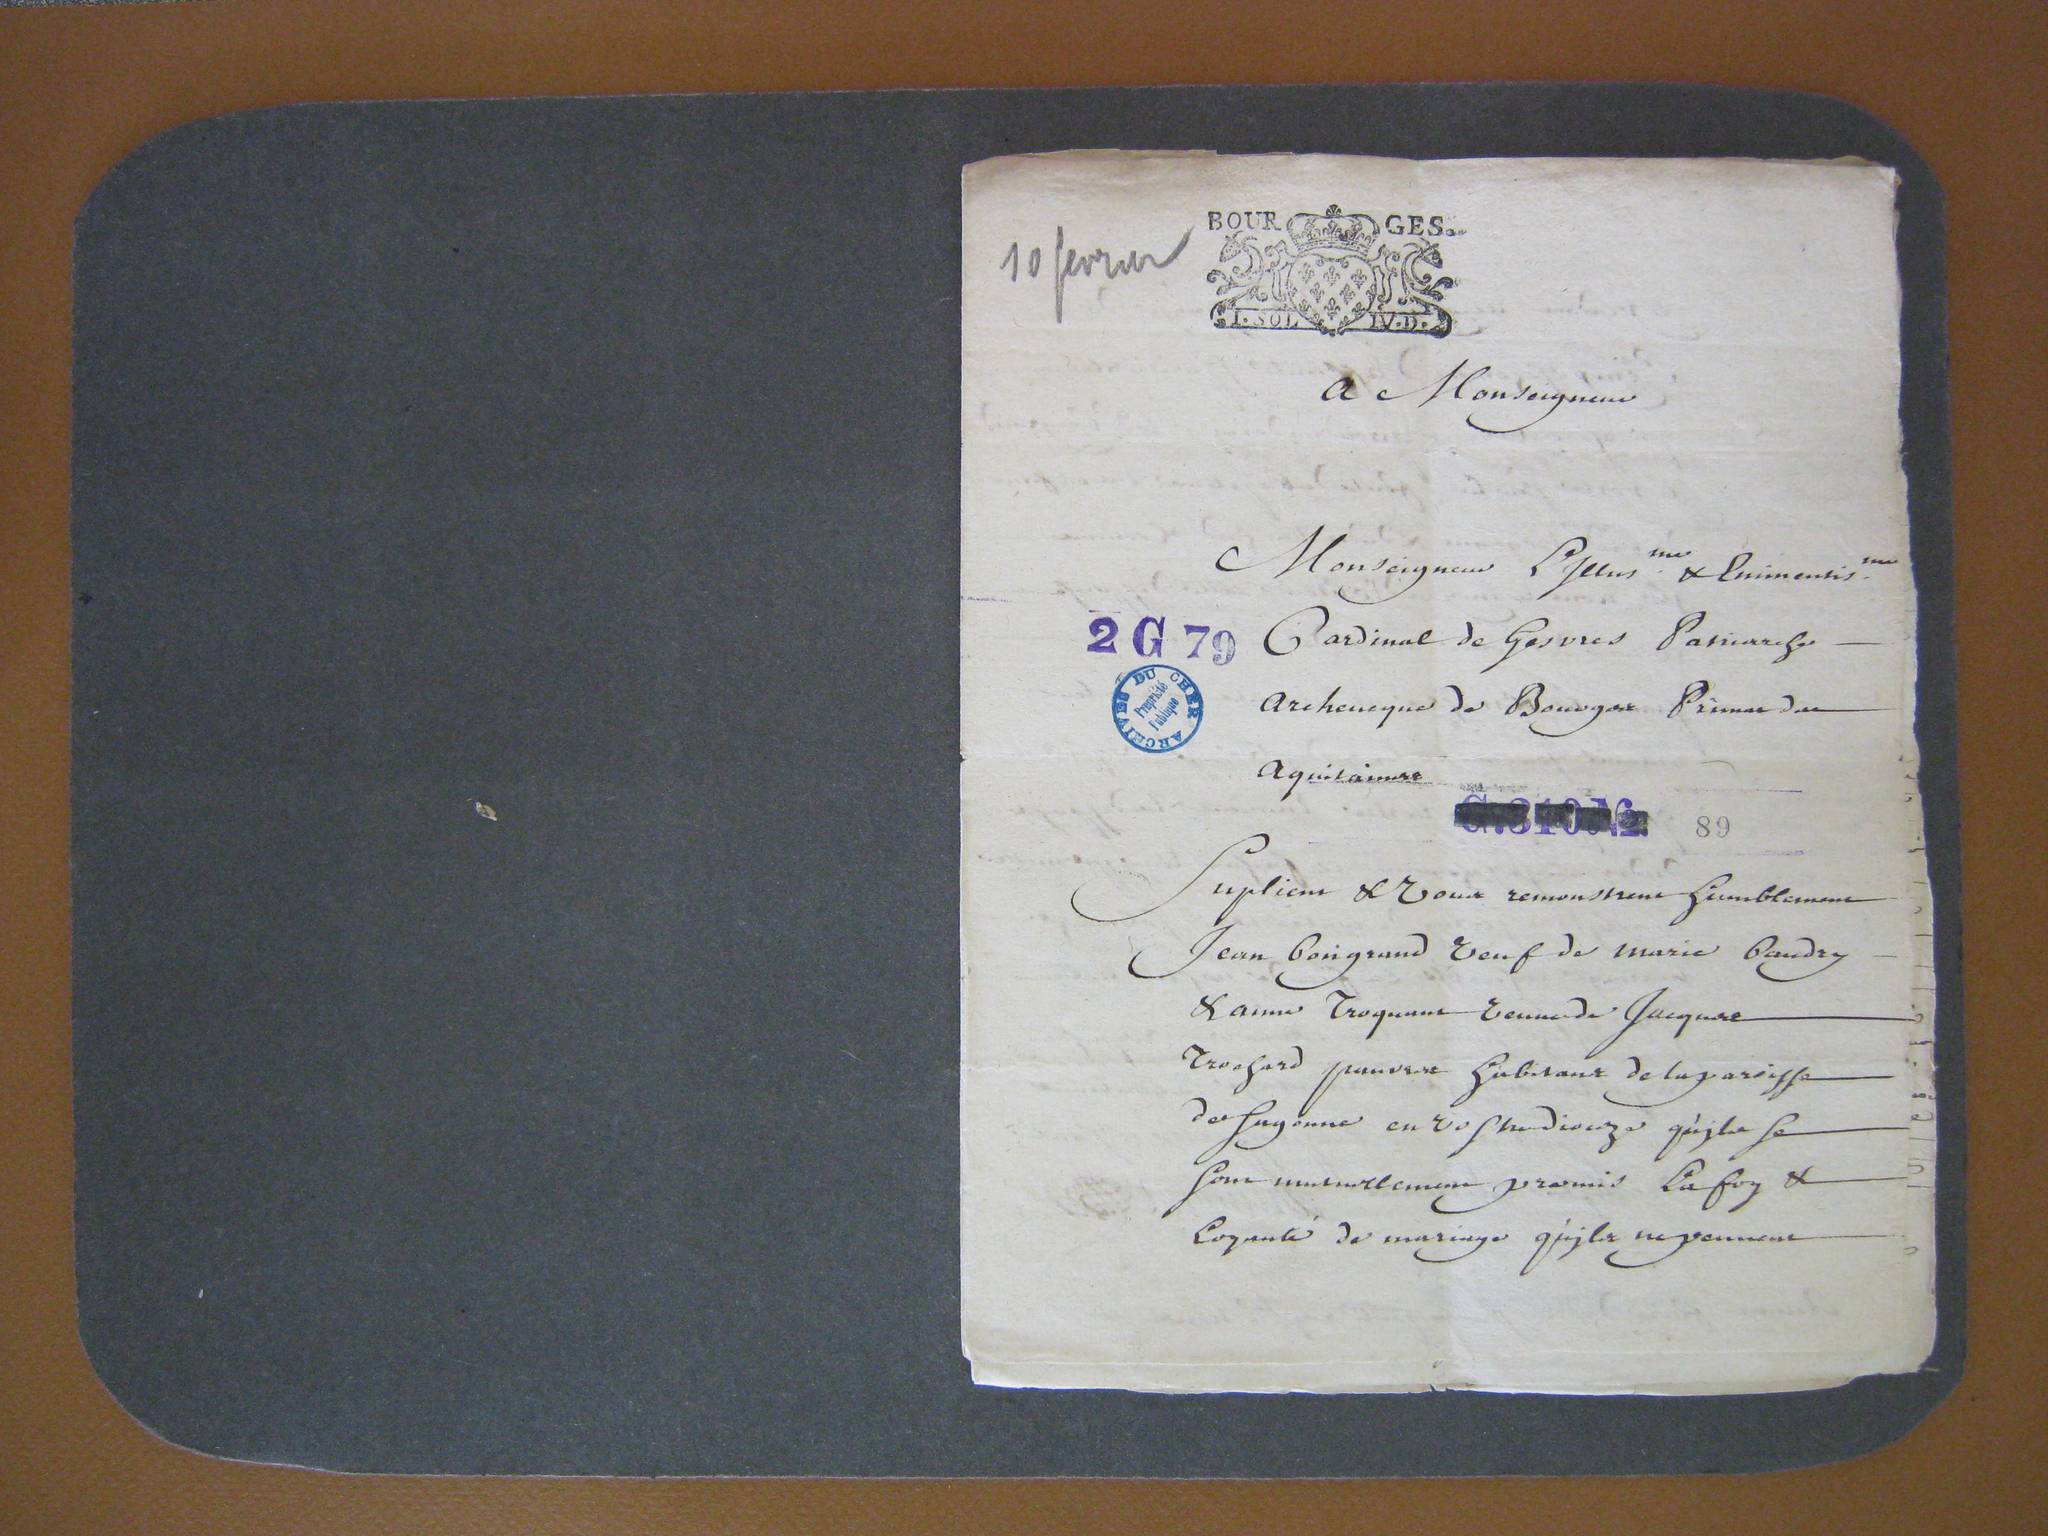 10 fevrier
BOURGES.
I. SOL IV. D.
A Monseigneur
Monseigneur L'Illus.me & Eminentis.me
2 G 79
Cardinal de Gesvres Patriarche
ARCHIVES DU CHER
Propriété Publique
Archeueque de Bourges Primat des
Aquitaines
G.310 N2.
89
Suplient & Vous remonstrent humblement
Jean Bongrand Veuf de Marie Baudry
& Anne Troquant Veuue de Jacques
Trochard pauvres habitans de la paroisse
de Sagonne en Vostre dioceze qu'ils se
sont mutuellement promis La foy &
Loyauté de mariage qu'ils ne peuuent